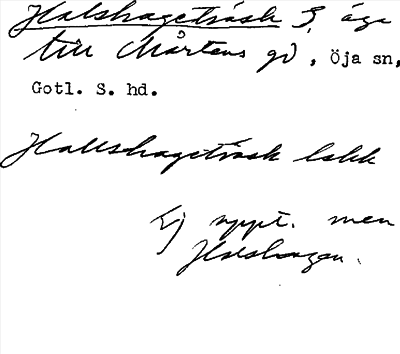 Halshageträsk 3, äga
till Mårtens gd, Öja sn,
Gotl. S. hd.
Hallshageträsk lokk
Ej uppt. men
Halshagen.